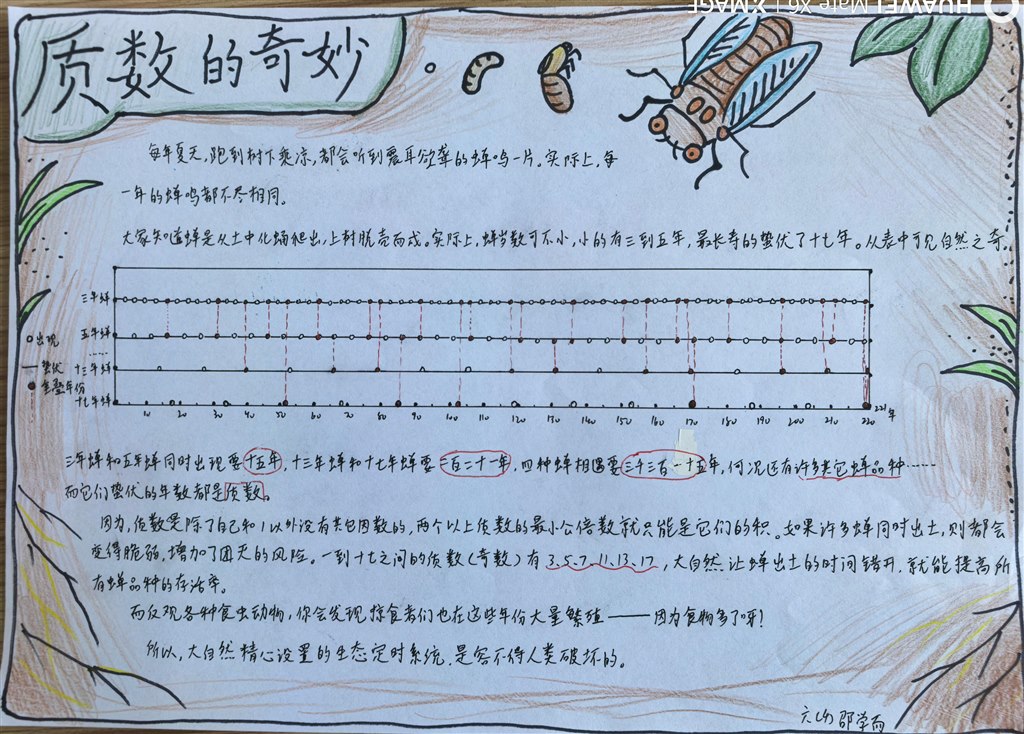 HUAWEI Mate X6 | XMAGE
质数的奇妙
每年夏天，跑到树下乘凉，都会听到震耳欲聋的蝉鸣一片。实际上，每
一年的蝉鸣都不尽相同。
大家知道蝉是从土中化蛹爬出，上树脱壳而成。实际上，蝉岁数可不小，小的有三到五年，最长寿的蛰伏了十七年。从表中可见自然之奇。
三年蝉
五年蝉
……
十三年蝉
十七年蝉
出现
蛰伏
重叠年份
10 20 30 40 50 60 70 80 90 100 110 120 130 140 150 160 170 180 190 200 210 220 221 年
三年蝉和五年蝉同时出现要十五年，十三年蝉和十七年蝉要二百二十一年，四种蝉相遇要三千三百一十五年，何况还有许多其它蝉品种……
而它们蛰伏的年数都是质数。
因为，质数是除了自己和1以外没有其它因数的，两个以上质数的最小公倍数就只能是它们的积。如果许多蝉同时出土，则都会
变得脆弱，增加了团灭的风险。一到十七之间的质数（奇数）有3、5、7、11、13、17，大自然让蝉出土的时间错开，就能提高所
有蝉品种的存活率。
而反观各种食虫动物，你会发现掠食者们也在这些年份大量繁殖——因为食物多了呀！
所以，大自然精心设置的生态定时系统，是容不得人类破坏的。
六(4) 邵学而